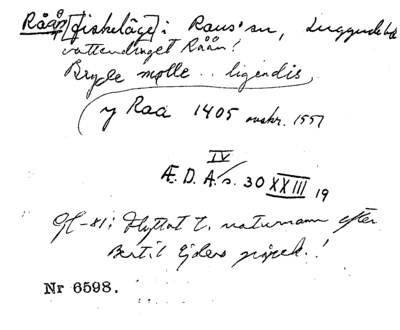 Råån [fiskeläge] i Raus' sn, Luggude hd
vattendraget Råån!
Brydle mølle .. ligendis
y Raa 1405 avskr. 1557
IV
Æ. D. A. s. 30 XXIII 19
Gf -81; Flyttat t. naturnamn efter
Bertil Ejders påpek.!
Nr 6598.